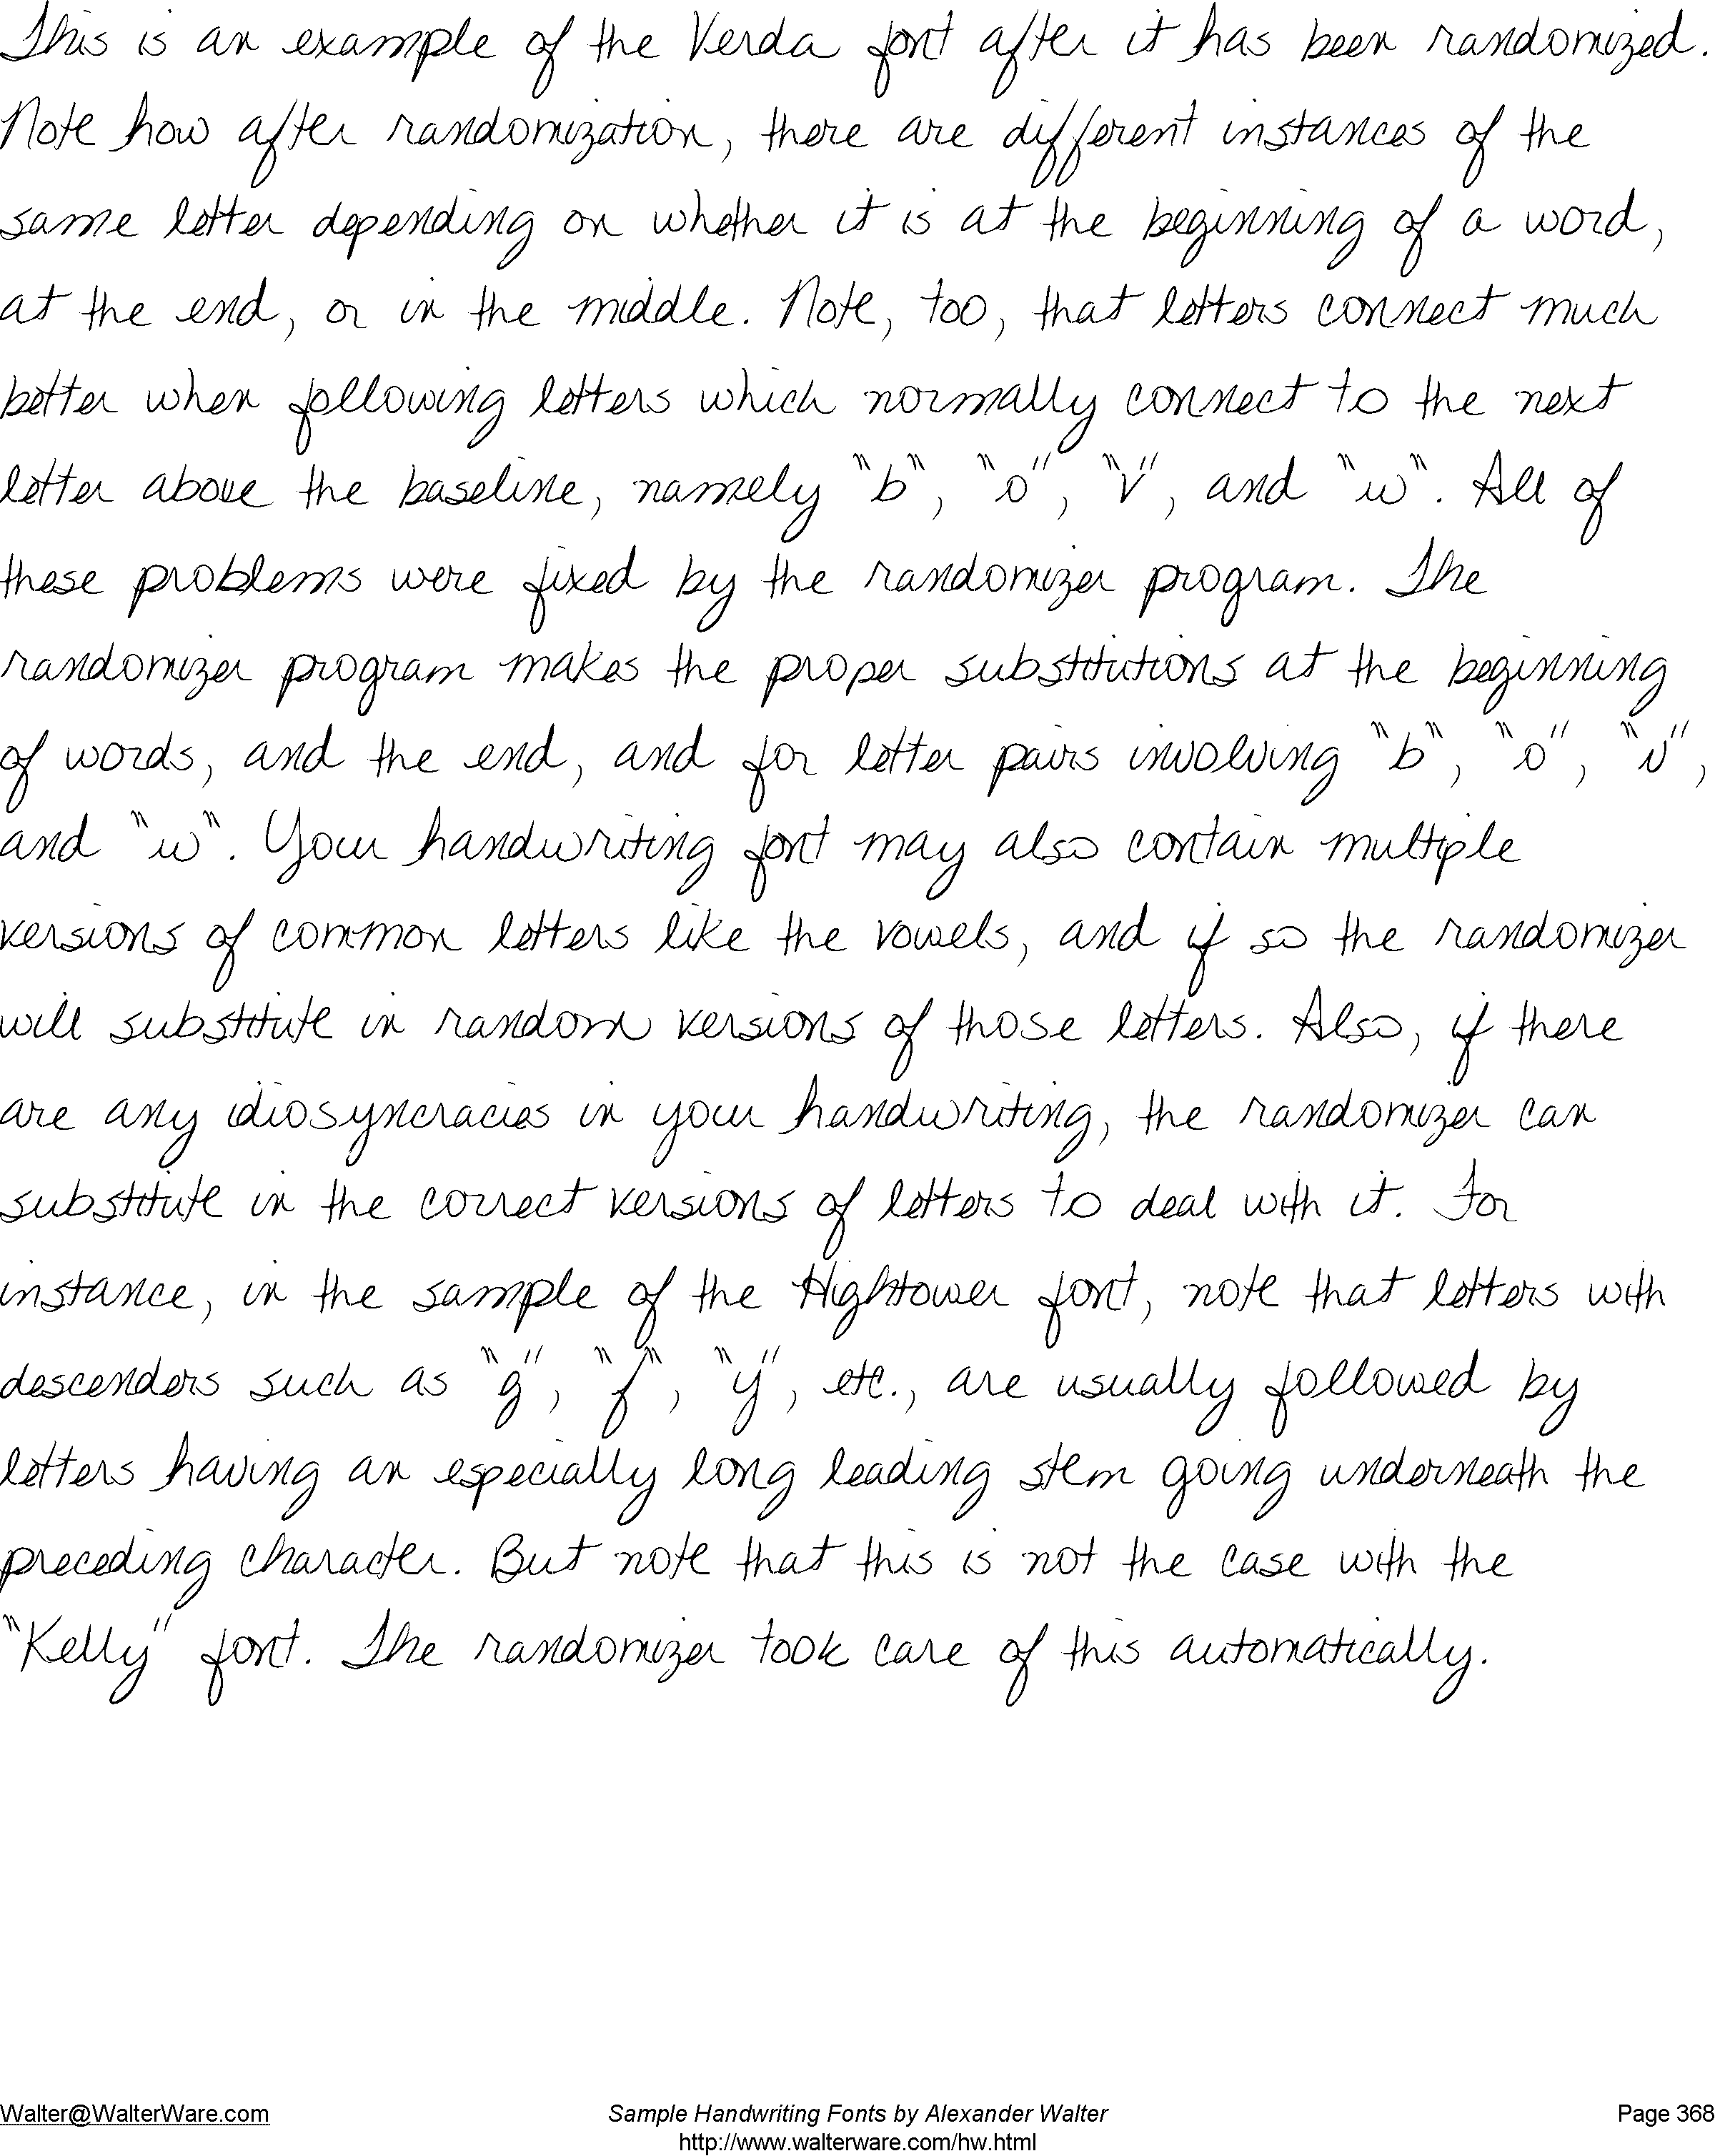 This is an example of the Verda font after it has been randomized.
Note how after randomization, there are different instances of the
same letter depending on whether it is at the beginning of a word,
at the end, or in the middle. Note, too, that letters connect much
better when following letters which normally connect to the next
letter above the baseline, namely "b", "o", "v", and "w". All of
these problems were fixed by the randomizer program. The
randomizer program makes the proper substitutions at the beginning
of words, and the end, and for letter pairs involving "b", "o", "v",
and "w". Your handwriting font may also contain multiple
versions of common letters like the vowels, and if so the randomizer
will substitute in random versions of those letters. Also, if there
are any idiosyncracies in your handwriting, the randomizer can
substitute in the correct versions of letters to deal with it. For
instance, in the sample of the Hightower font, note that letters with
descenders such as "g", "f", "y", etc., are usually followed by
letters having an especially long leading stem going underneath the
preceding character. But note that this is not the case with the
"Kelly" font. The randomizer took care of this automatically.
Walter@WalterWare.com Sample Handwriting Fonts by Alexander Walter Page 368
http://www.walterware.com/hw.html